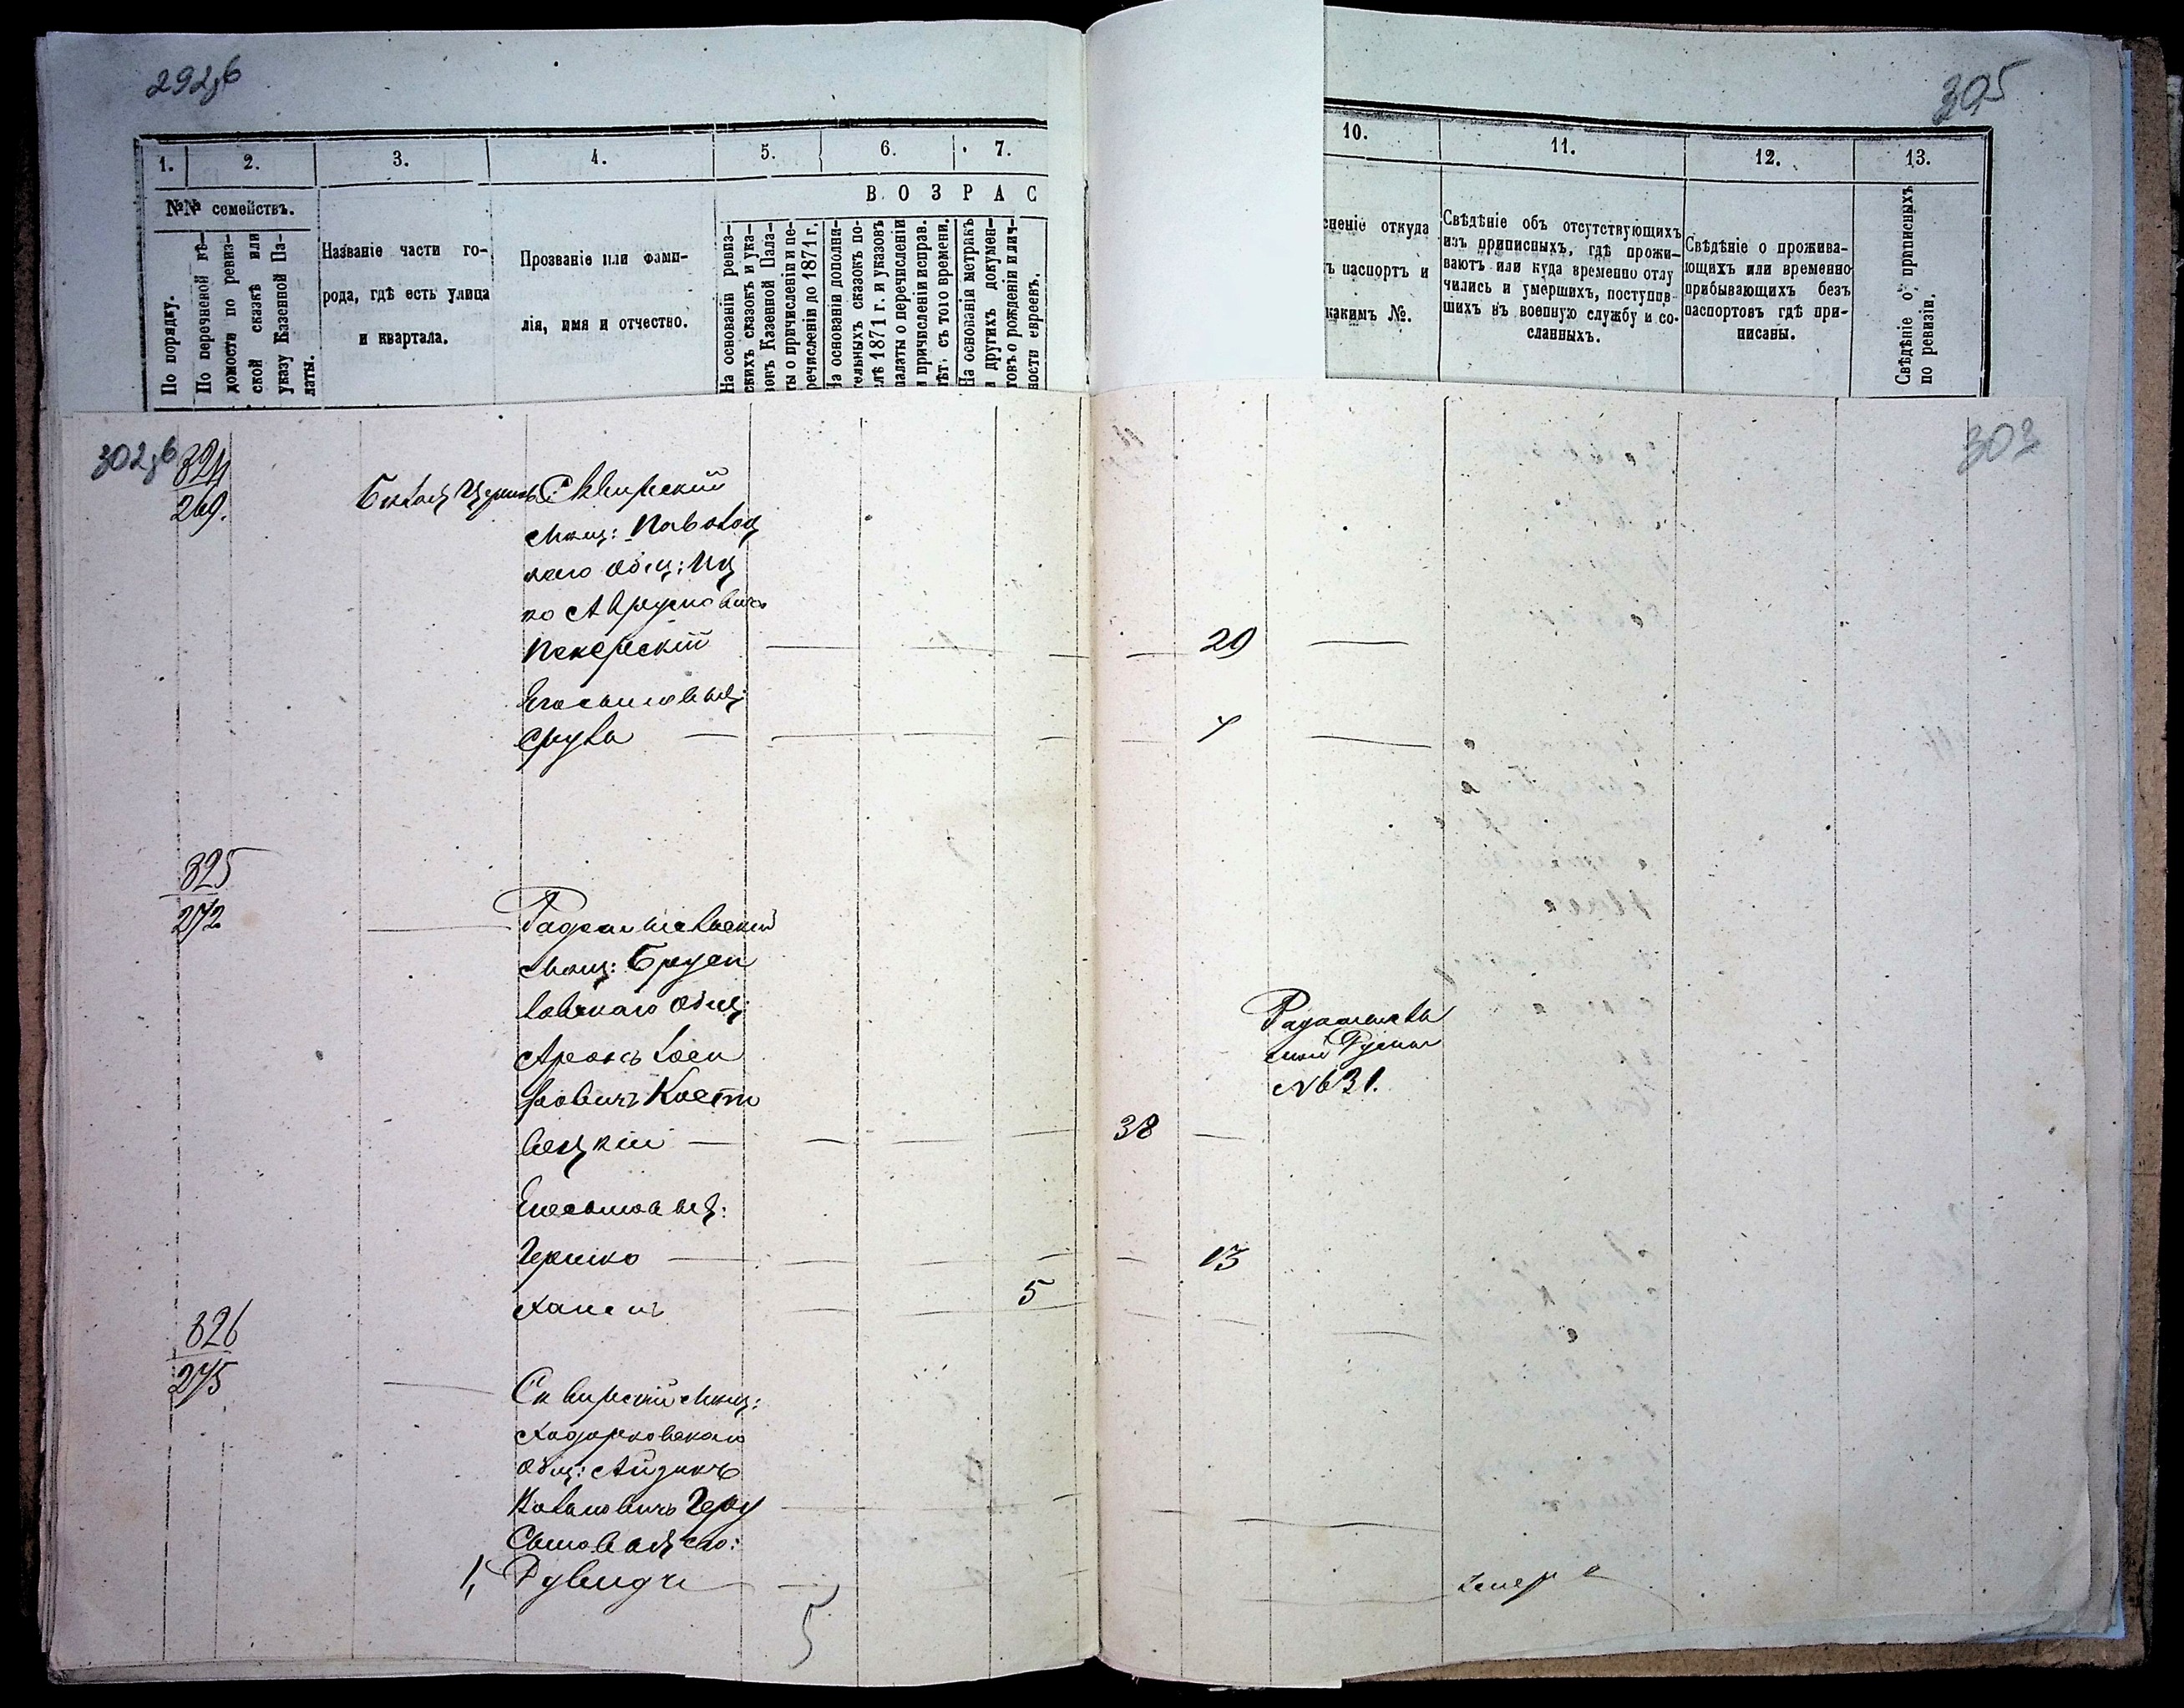 292об
305
1.
2.
3.
4.
5.
6.
7.
10.
11.
12.
13.
№№ семействъ.
В О З Р А С
По порядку.
По перечневой вѣ-
домости по ревиз-
ской сказкѣ или
указу Казенной Па-
латы.
Названіе части го-
рода, гдѣ есть улица
и квартала.
Прозваніе или фами-
лія, имя и отчество.
На основаніи ревиз-
скихъ сказокъ и ука-
зовъ Казенной Пала-
ты о причисленіи и пе-
речисленіи до 1871 г.
На основаніи дополни-
тельныхъ сказокъ по-
слѣ 1871 г. и указовъ
палаты о перечисленіи
и причисленіи исправ.
лѣт. съ того времени.
На основаніи метрикъ
и другихъ докумен-
товъ о рожденіи и лич-
ности евреевъ.
сненіе откуда
ъ паспортъ и
какимъ №.
Свѣдѣніе объ отсутствующихъ
изъ приписныхъ, гдѣ прожи-
ваютъ или куда временно отлу
чились и умершихъ, поступив-
шихъ въ военную службу и со-
сланныхъ.
Свѣдѣніе о прожива-
ющихъ или временно
прибывающихъ безъ
паспортовъ гдѣ при-
писаны.
Свѣдѣніе о приписныхъ
по ревизіи.
302об
303
324
269.
Сквирскій
мѣщ: Паволоц
каго общ: Иц
ко
29
Его сыновья:
Сруль
7
325
272
Радомысльскій
мѣщ: Брусил
ловскаго общ:
Аронъ Іоси
фовичъ Кости
вецкій
Радомысль
ской Думы
№31.
38
Его сыновья:
Гершко
13
5
326
275
Сквирскій мѣщ:
Ходорковскаго
общ: Айзикъ
Сыновья его:
1, Рувинъ
умеръ
5